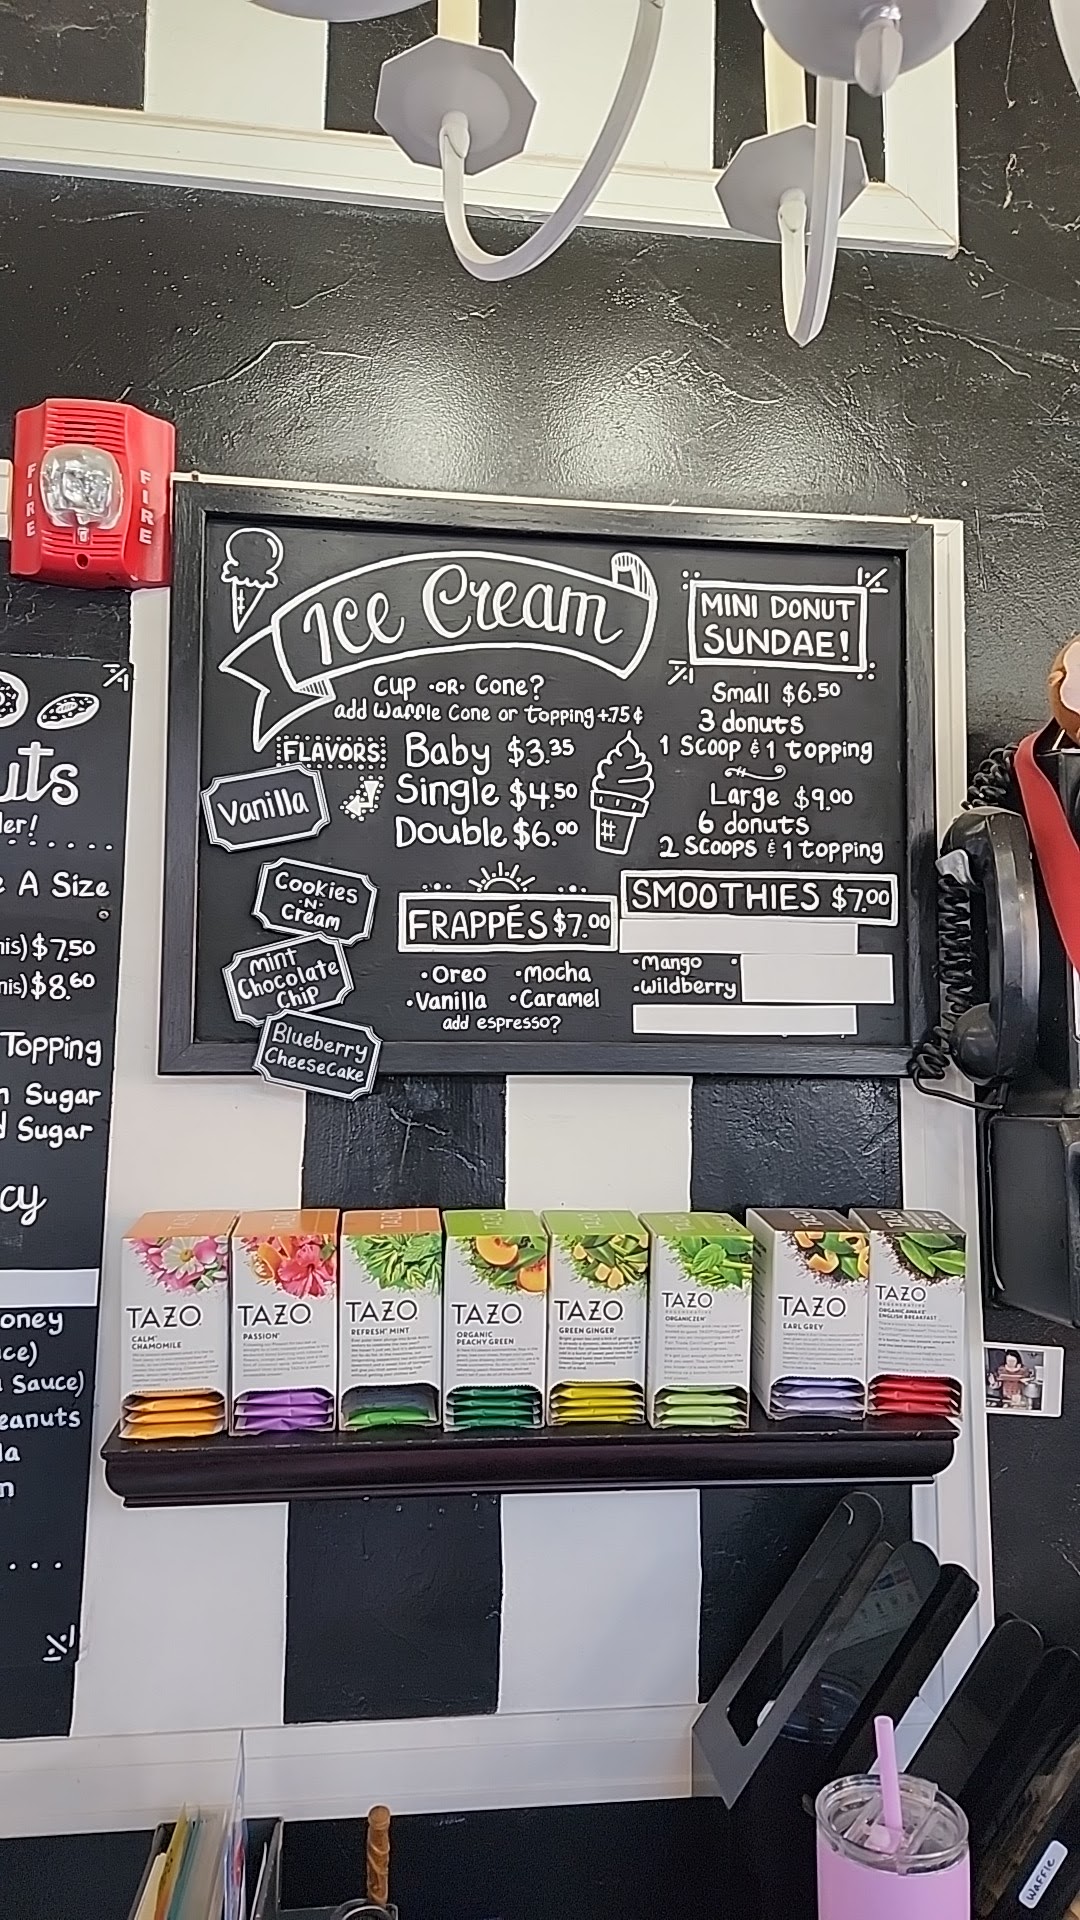 FIRE
FIRE
Ice Cream
Cup ·OR· Cone?
add Waffle Cone or topping +.75¢
FLAVORS:
Baby $3.35
Single $4.50
Double $6.00
Vanilla
Cookies
-N-
Cream
Mint
Chocolate
Chip
Blueberry
CheeseCake
FRAPPÉS $7.00
•Oreo •Mocha
•Vanilla •Caramel
add espresso?
MINI DONUT
SUNDAE!
Small $6.50
3 donuts
1 Scoop & 1 topping
Large $9.00
6 donuts
2 Scoops & 1 topping
SMOOTHIES $7.00
•Mango •
•Wildberry
uts
ler!
e A Size
nis) $7.50
nis) $8.60
Topping
n Sugar
d Sugar
cy
oney
ce)
Sauce)
eanuts
la
n
TAZO
CALM
CHAMOMILE
TAZO
PASSION
TAZO
REFRESH MINT
TAZO
ORGANIC
PEACHY GREEN
TAZO
GREEN GINGER
TAZO
REGENERATIVE
ORGANIC ZEN
TAZO
EARL GREY
TAZO
REGENERATIVE
ORGANIC AWAKE
ENGLISH BREAKFAST
Waffle